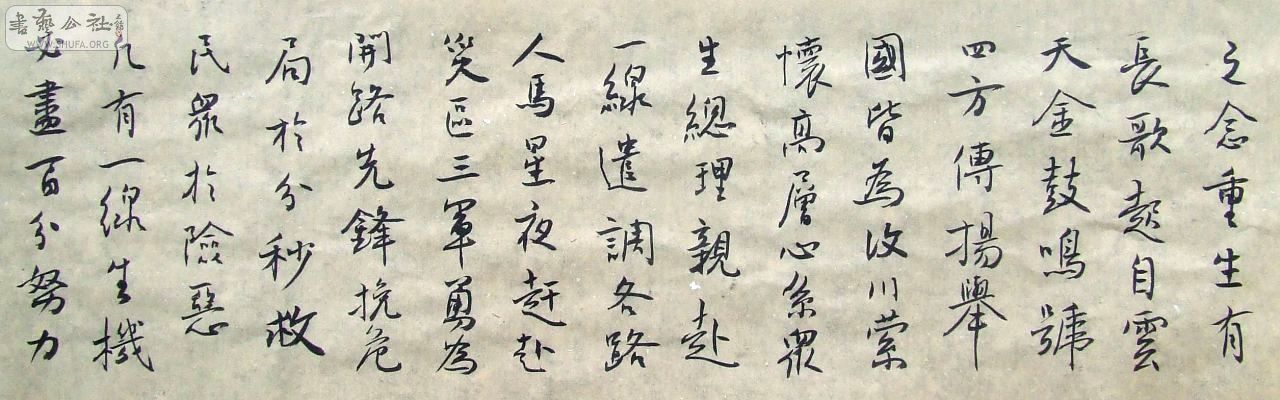 之念重生有
長歌起自雲
天金鼓鳴號
四方傳揚舉
國皆為汶川縈
懷高層心系眾
生總理親赴
一線遣調各路
人馬星夜赶赴
災區三軍勇為
開路先鋒挽危
局於分秒救
民眾於險惡
凡有一線生機
必盡百分努力
書藝公社
WWW.SHUFA.ORG